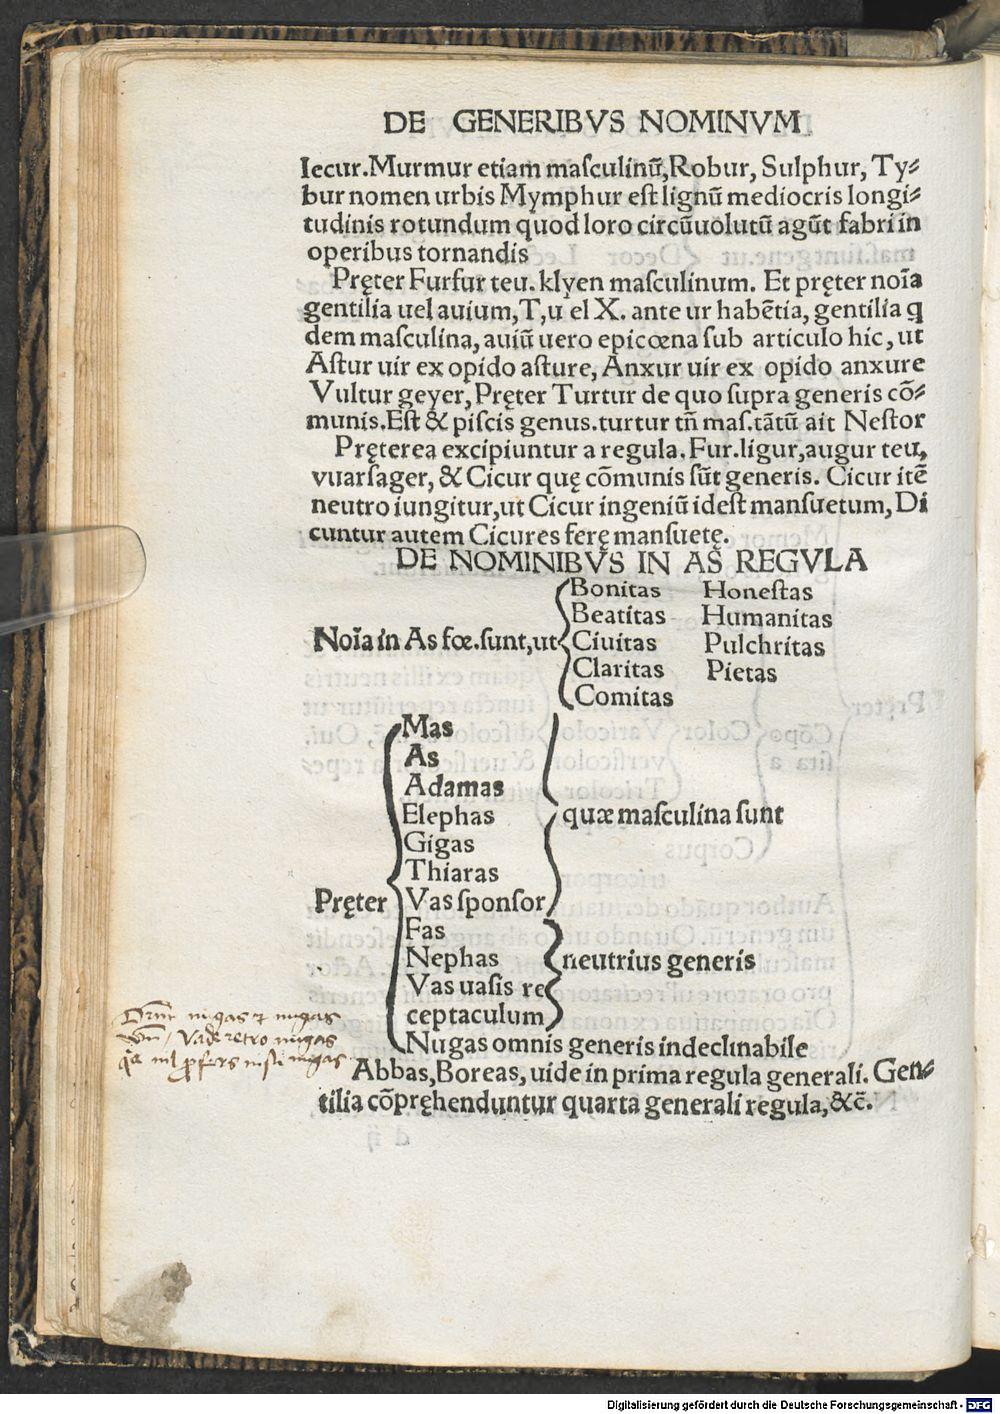 DE GENERIBVS NOMINVM
Iecur. Murmur etiam maſculinũ, Robur, Sulphur, Ty⸗
bur nomen urbis Mymphur eſt lignũ mediocris longi⸗
tudinis rotundum quod loro circũuolutũ agũt fabri in
operibus tornandis
Pręter Furfur teu. klyen maſculinum. Et pręter noĩa
gentilia uel auium, T, u el X. ante ur habẽtia, gentilia q
dem maſculina, auiũ uero epicœna ſub articulo hic, ut
Aſtur uir ex opido aſture, Anxur uir ex opido anxure
Vultur geyer, Pręter Turtur de quo ſupra generis cõ⸗
munis. Eſt & piſcis genus. turtur tñ maſ. tãtũ ait Neſtor
Pręterea excipiuntur a regula. Fur. ligur, augur teu,
vuarſager, & Cicur quę cõmunis ſũt generis. Cicur itẽ
neutro iungitur, ut Cicur ingeniũ ideſt manſuetum, Di
cuntur autem Cicures ferę manſuetę.
DE NOMINIBVS IN AS REGVLA
Noĩa in As fœ. ſunt, ut
Bonitas Honeſtas
Beatitas Humanitas
Ciuitas Pulchritas
Claritas Pietas
Comitas
Pręter
Mas
As
Adamas
Elephas
Gigas
Thiaras
Vas ſponſor
quæ maſculina ſunt
Fas
Nephas
Vas uaſis re
ceptaculum
neutrius generis
Nugas omnis generis indeclinabile
Abbas, Boreas, uide in prima regula generali. Gen⸗
tilia cõpręhenduntur quarta generali regula, &c̃.
nugas et nugas
Vade retro nugas
nisi nugas
Digitalisierung gefördert durch die Deutsche Forschungsgemeinschaft - DFG